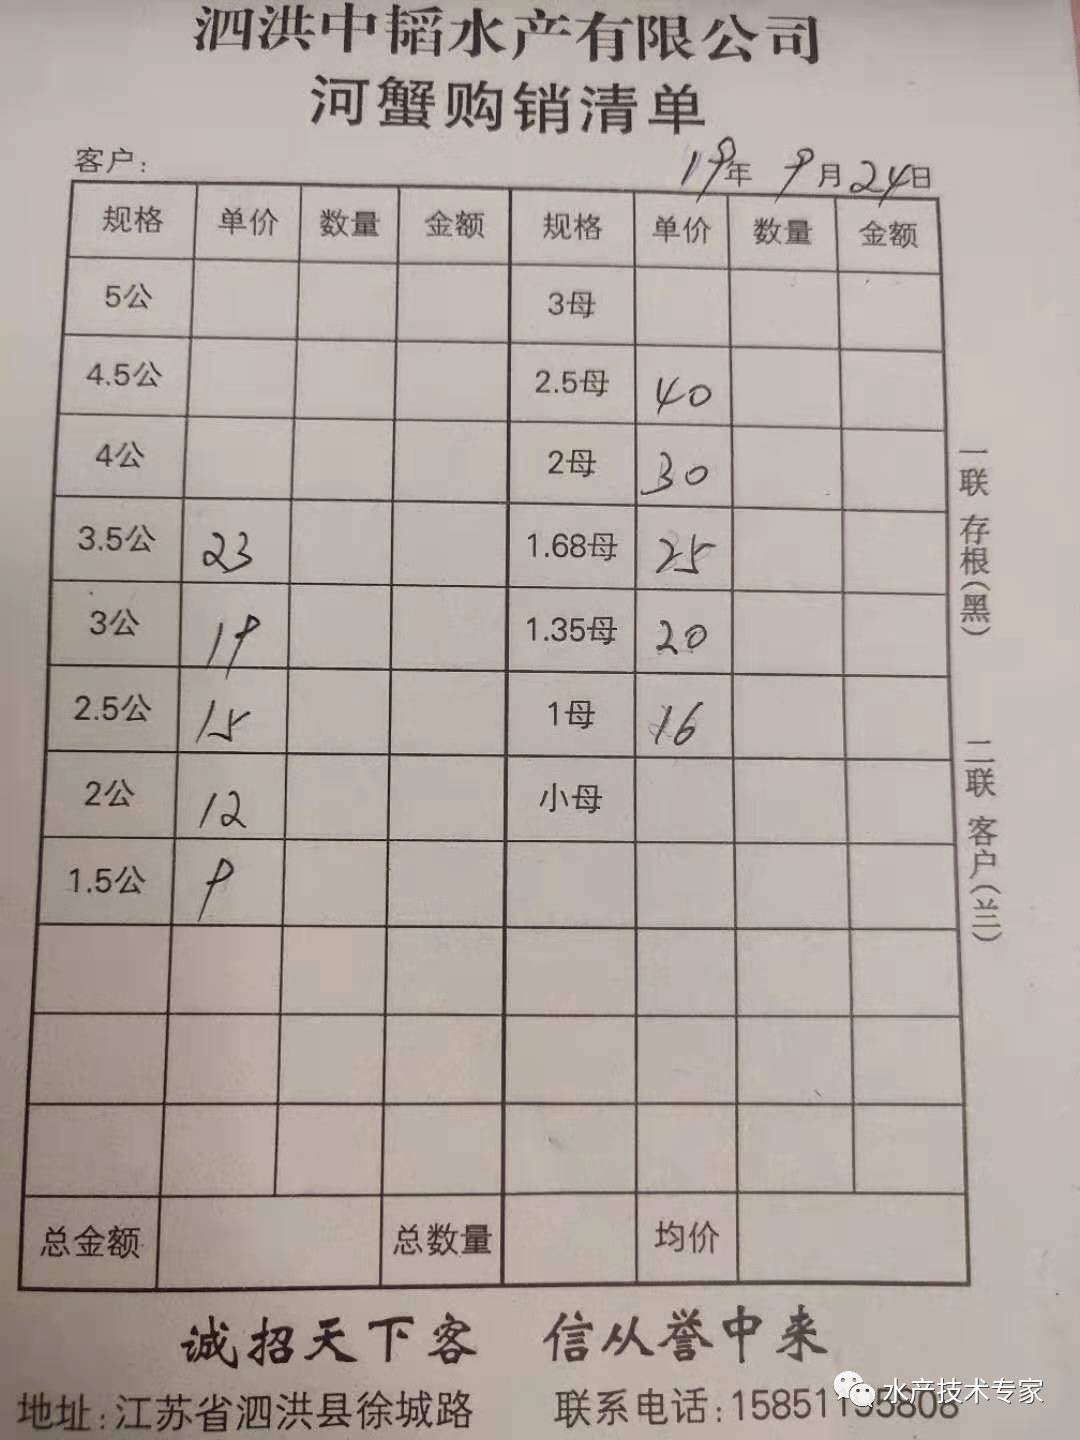 泗洪中韬水产有限公司
河蟹购销清单
客户: 19年 9月24日
规格 单价 数量 金额 规格 单价 数量 金额
5公 3母
4.5公 2.5母 40
4公 2母 30
3.5公 23 1.68母 25
3公 19 1.35母 20
2.5公 15 1母 16
2公 12 小母
1.5公 9
总金额 总数量 均价
一联 存根(黑)
二联 客户(兰)
诚招天下客 信从誉中来
地址:江苏省泗洪县徐城路 联系电话:15851195808
水产技术专家